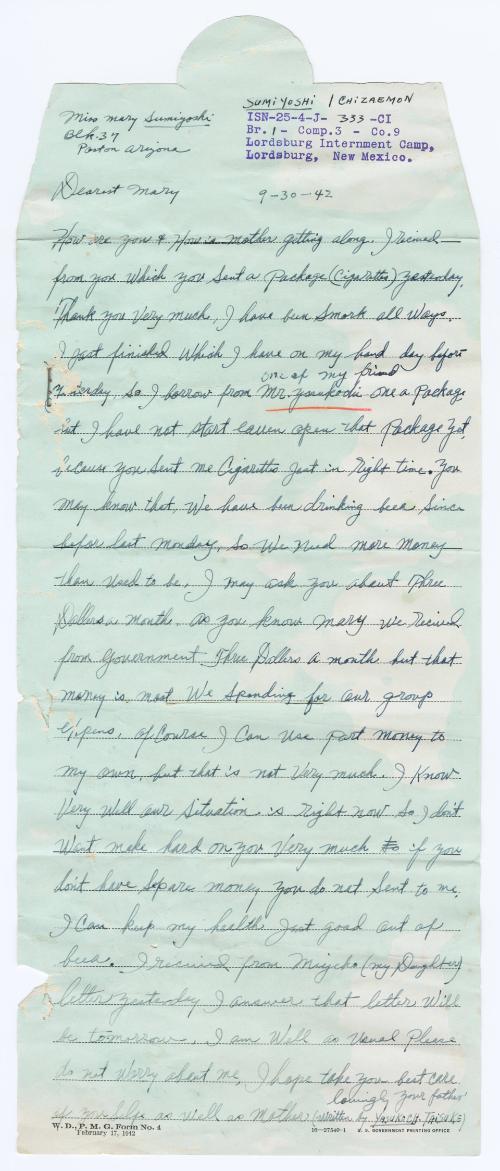 Miss Mary Sumiyoshi
Blk. 37
Poston Arizona
SUMIYOSHI / CHIZAEMON
ISN-25-4-J- 333 -CI
Br. 1 - Comp. 3 - Co. 9
Lordsburg Internment Camp,
Lordsburg, New Mexico.
Dearest Mary 9-30-42
How are you & How is mother getting along. I recived
from you Which you Sent a Package (Cigaretts) yesterday.
Thank you Very much, I have been Smork all Ways.
I Just finished Which I have on my hand day befor
one of my friend
yesterday, So I borrow from Mr. Yasukochi one a Package
but I have not start eaven open that Package yet,
because you Sent me Cigaretts Just in right time. You
may know that, We have been drinking bea Since
befor last monday, So We Need more money
than used to be, I may ask you about Three
Dollers a month. as you know mary We recived
from Government Three Dollers a month but that
money is, most We Spending for our group
expens, of Course I Can use Part money to
my own, but that is not Very much. I Know
Very Well our Situation is right now So I don't
Want make hard on you Very much so if you
don't have Spare money you do not Sent to me.
I Can keep my health Just good out of
bea. I recived from Miycko (my Daughter)
letter yesterday I answer that letter Will
be tomorrow. I am Well as usual Please
do not Worry about me, I hope take you best care
lovingly your father
of your helps as Well as Mother (written by YASUKOCHI, TAISUKE)
W. D., P. M. G. Form No. 4
February 17, 1942
16-27540-1 U. S. GOVERNMENT PRINTING OFFICE